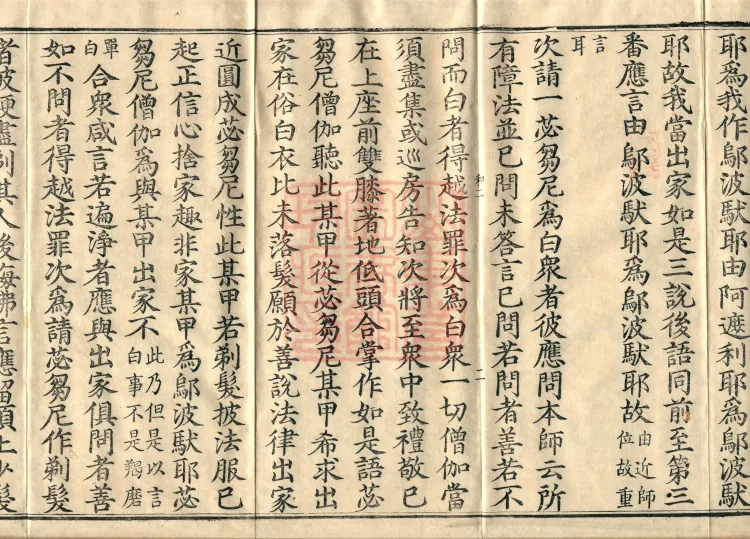 耶爲我作鄔波馱耶由阿遮利耶爲鄔波馱
耶故我當出家如是三說後語同前至第三
番應言由鄔波馱耶爲鄔波馱耶故由近師位故重
言耳
次請一苾芻尼爲白衆者彼應問本師云所
有障法並已問未答言已問若問者善若不
問而白者得越法罪次爲白衆一切僧伽當
須盡集或巡房告知次將至衆中致禮敬已
在上座前雙膝著地低頭合掌作如是語苾
芻尼僧伽聽此某甲從苾芻尼某甲希求出
家在俗白衣比未落髮願於善說法律出家
近圓成苾芻尼性此某甲若剃髮披法服已
起正信心捨家趣非家某甲爲鄔波馱耶苾
芻尼僧伽爲與某甲出家不此乃但是以言白事不是羯磨
單白合衆咸言若遍淨者應與出家俱問者善
如不問者得越法罪次爲請苾芻尼作剃髮
者彼便盡剃其人後悔佛言應留頂上少髮